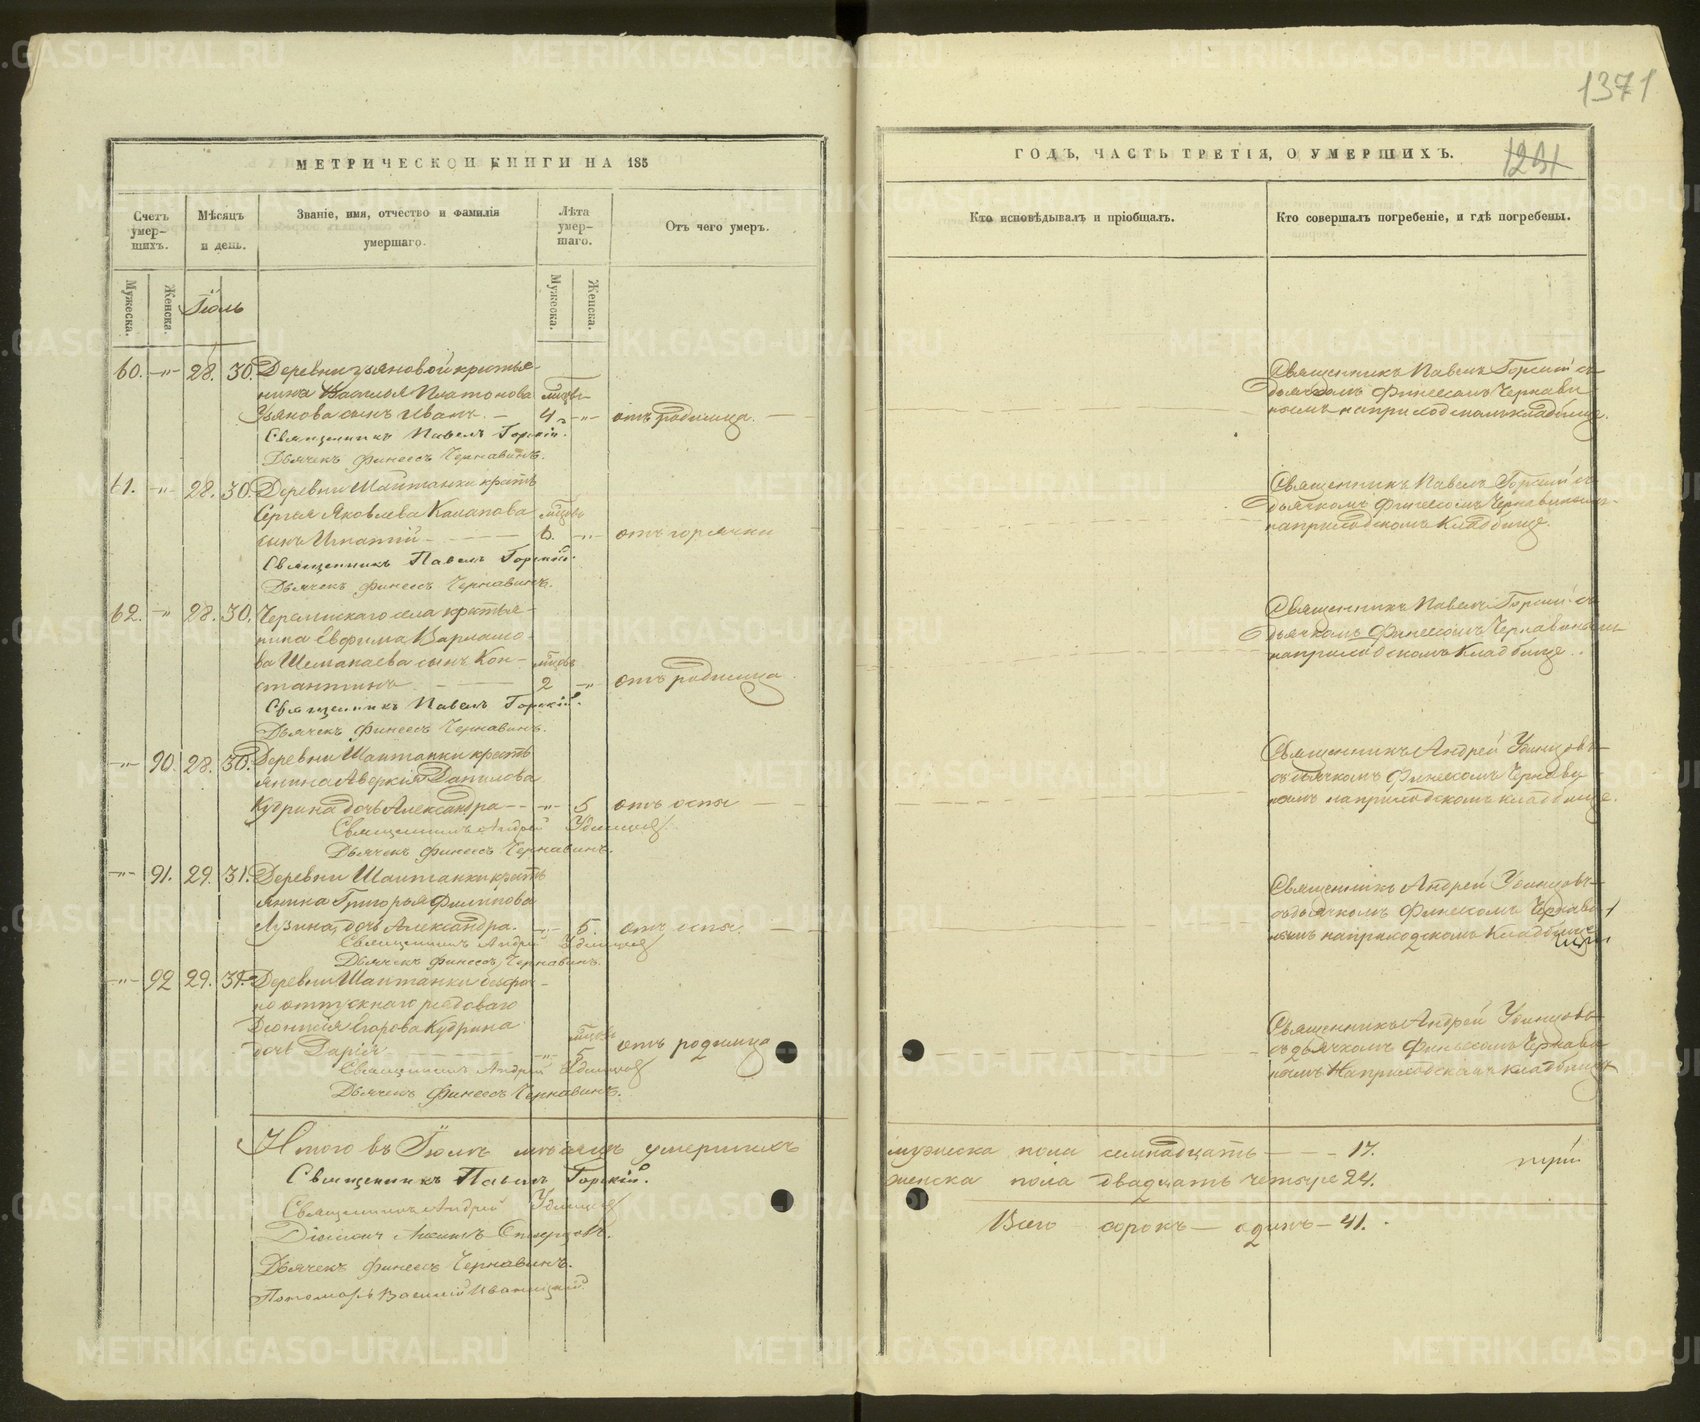 1371
МЕТРИЧЕСКОЙ КНИГИ НА 185
ГОДЪ, ЧАСТЬ ТРЕТІЯ, О УМЕРШИХЪ.
Счетъ умер-шихъ.
Мѣсяцъ и день.
Званіе, имя, отчество и фамилія умершаго.
Лѣта умер-шаго.
Отъ чего умеръ.
Кто исповѣдывалъ и пріобщалъ.
Кто совершалъ погребеніе, и гдѣ погребены.
Мужеска.
Женска.
Іюль
Мужеска.
Женска.
60. -"- 28. 30. Деревни Зыяновой кресть-
янина Василья Платонова мѣцвъ
Зыянова сынъ Иванъ. - 4 -"- отъ родимца.
Священникъ Павелъ Горскій.
Дьячекъ Финеесъ Чернавинъ.
Священникъ Павелъ Горскій съ
дьячкомъ Финеесомъ Чернави
нымъ на приходскомъ кладбище.
61. -"- 28. 30. Деревни Шайтанки крестъ
Сергея Яковлева мѣцвъ
сынъ Игнатій - 6. -"- отъ горячки
Священникъ Павелъ Горскій.
Дьячекъ Финеесъ Чернавинъ.
Священникъ Павелъ Горскій съ
дьячкомъ Финеесомъ Чернавинымъ
на приходскомъ кладбище.
62. -"- 28. 30. села кресть-
янина Евфима Варламо-
ва сынъ Кон- мѣцвъ
стантинъ 2 -"- отъ родимца
Священникъ Павелъ Горскій.
Дьячекъ Финеесъ Чернавинъ.
Священникъ Павелъ Горскій съ
дьячкомъ Финеесомъ Чернавинымъ
на приходскомъ кладбище.
-"- 90. 28. 30. Деревни Шайтанки кресть
янина Аверкія Данилова
Кудрина дочь Александра - -"- 5 отъ оспы
Священникъ Андрей Удинцовъ
Дьячекъ Финеесъ Чернавинъ.
Священникъ Андрей Удинцовъ
съ дьячкомъ Финеесомъ Чернави
нымъ на приходскомъ кладбище.
-"- 91. 29. 31. Деревни Шайтанки кресть
янина Григорья Филипова
Лузина, дочь Александра. -"- 5. отъ оспы.
Священникъ Андрей Удинцовъ
Дьячекъ Финеесъ Чернавинъ.
Священникъ Андрей Удинцовъ
съ дьячкомъ Финеесомъ Чернави
нымъ на приходскомъ кладбище
-"- 92 29. 31. Деревни Шайтанки безсро-
но отпускнаго рядоваго
Діонисія Егорова Кудрина мѣцвъ
дочь Дарія -"- 5 отъ родимца
Священникъ Андрей Удинцовъ
Дьячекъ Финеесъ Чернавинъ.
Священникъ Андрей Удинцовъ
съ дьячкомъ Финеесомъ Чернави
нымъ на приходскомъ кладбище
Итого въ Іюлѣ мѣсяцѣ умершихъ
мужеска пола семнадцать - - - 17.
женска пола двадцать четыре 24.
Всего сорокъ - одинъ - 41.
Священникъ Павелъ Горскій.
Священникъ Андрей Удинцовъ
Діаконъ
Дьячекъ Финеесъ Чернавинъ.
Пономарь Василій Иваницкій
METRIKI.GASO-URAL.RU